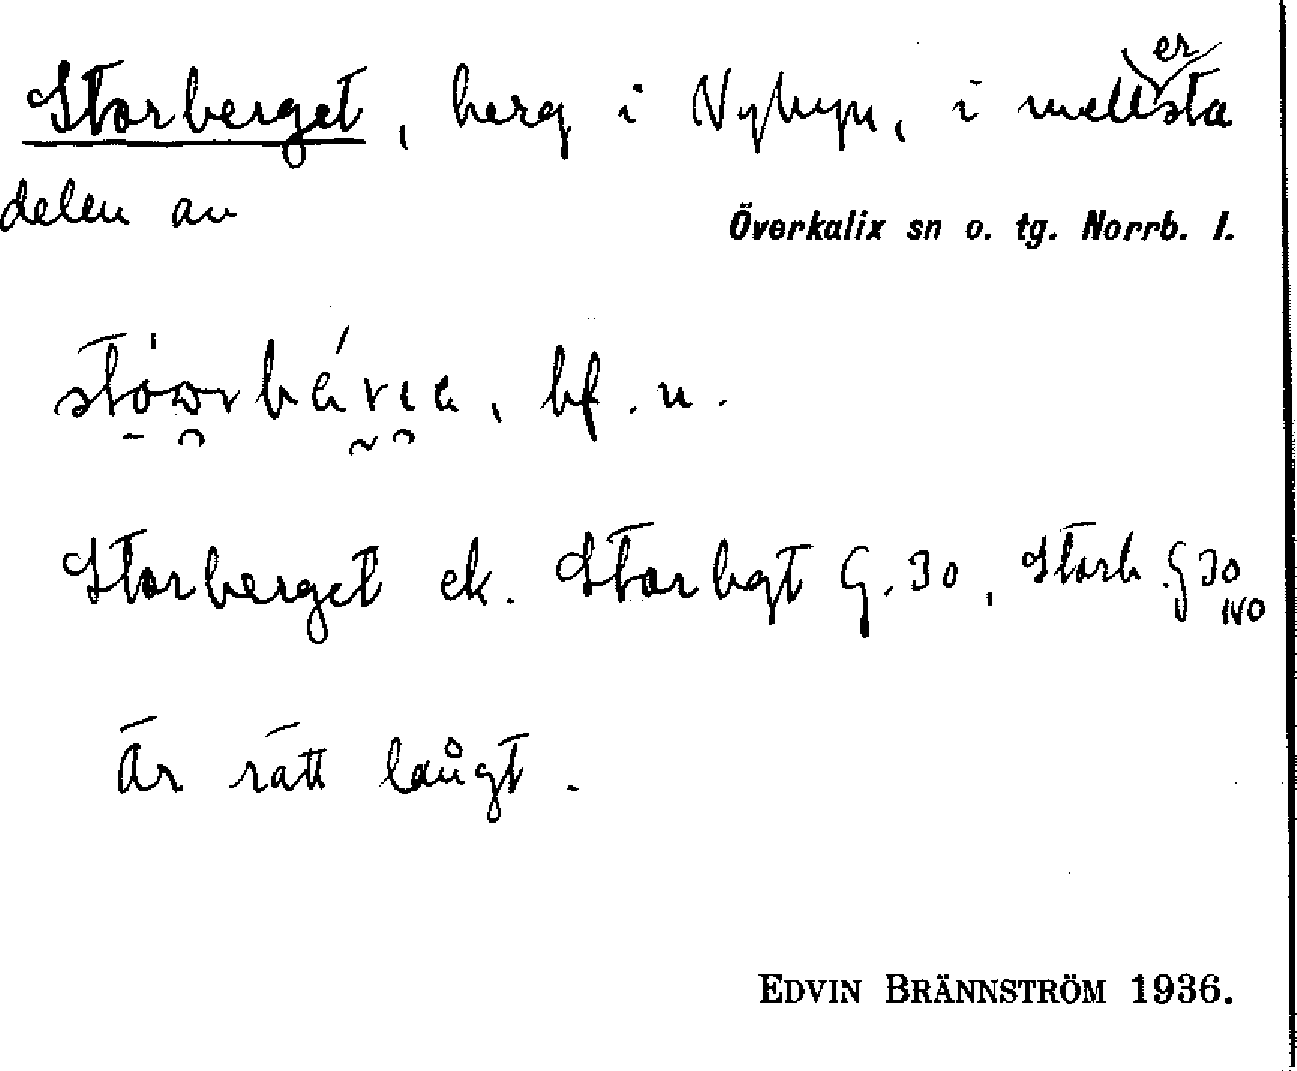 Storberget, berg i Nybyn, i mellersta
delen av
Överkalix sn o. tg. Norrb. l.
bf. n.
Storberget ek. Storbgt G. 30, Storb. G 30
NO
Är rätt långt.
EDVIN BRÄNNSTRÖM 1936.